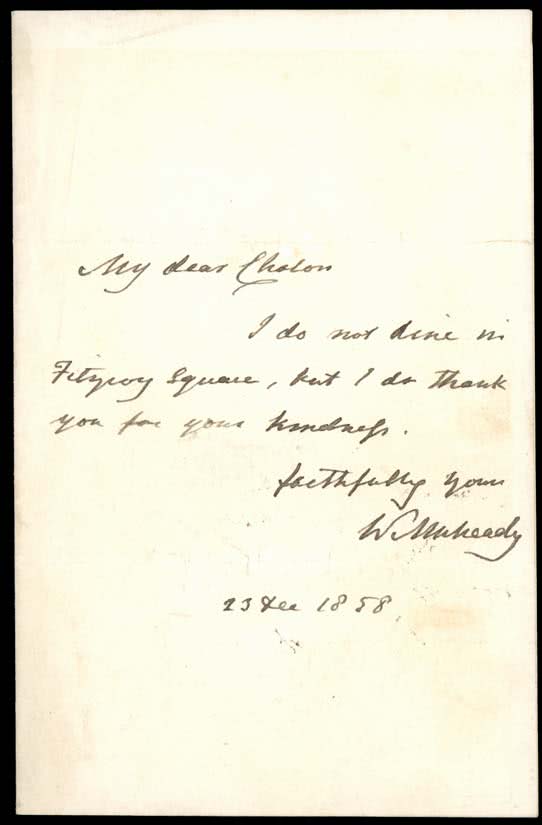 My dear Chalon
I do not dine in
Fitzroy Square, but I do thank
you for your kindness.
faithfully yours
W Mulready
23 Dec 1858